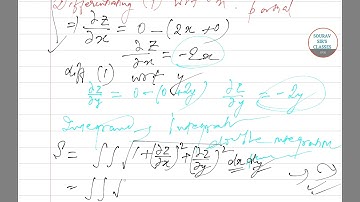 Differentiating (1) w.r.t x. partial
⇒ ∂z/∂x = 0 - (2x+0)
∂z/∂x = -2x
diff (1) w.r.t y
∂z/∂y = 0 - (0+2y) ∂z/∂y = -2y
Integrand Integrate
double integration
S = ∫∫ √1+(∂z/∂x)²+(∂z/∂y)² dxdy
= ∫∫ √
SOURAV
SIR'S
CLASSES